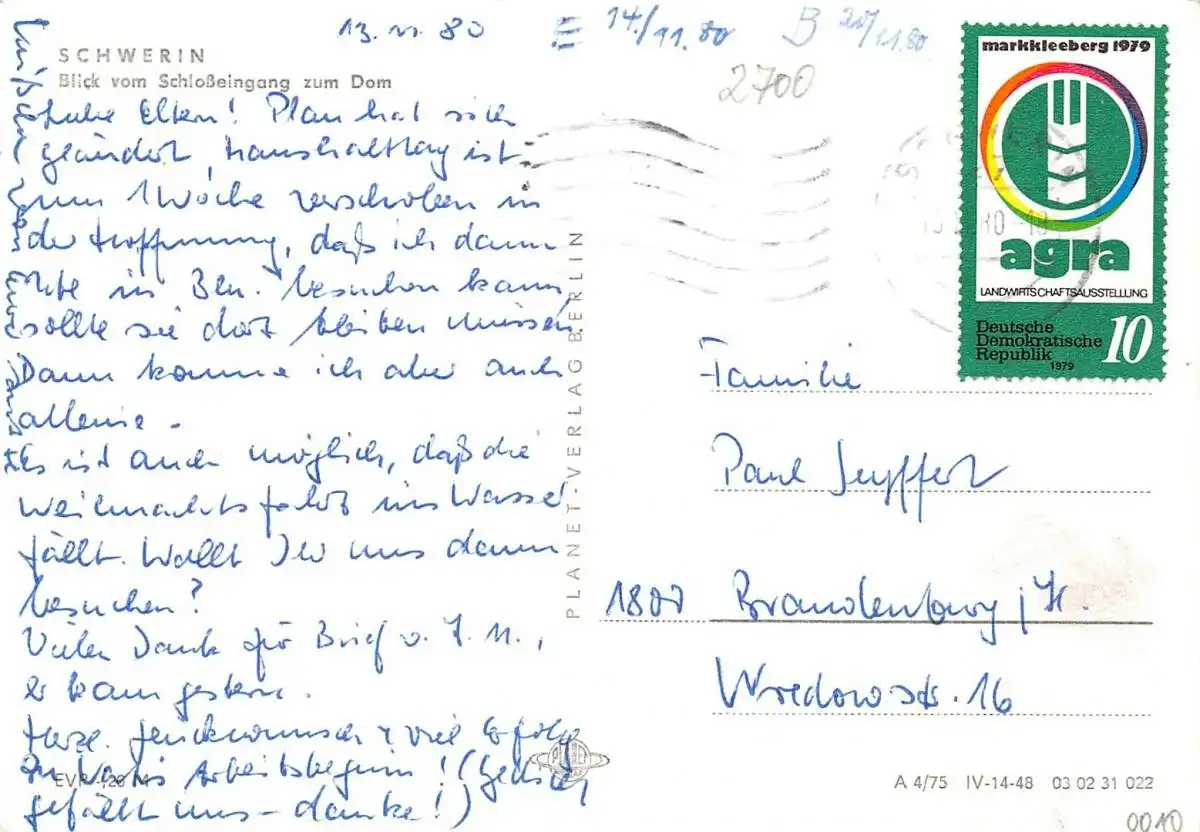 13.11.80
E 14./11.80 B 20/11.80
2700
SCHWERIN
Blick vom Schloßeingang zum Dom
Liebe Eltern! Plan hat sich
geändert, Haushalttag ist
um 1 Woche verschoben in
der Hoffnung, daß ich dann
in Bln. besuchen kann,
sollte sie dort bleiben müssen.
Dann komme ich aber auch
alleine.
Es ist auch möglich, daß die
Weihnachtsfahrt ins Wasser
fällt. Wollt Ihr uns dann
besuchen?
Vielen Dank für Brief v. 7.11.,
er kam gestern.
Herzl. Glückwunsch & viel Erfolg
zu Arbeitsbeginn! (Gedicht
gefällt uns – danke!)
PLANET-VERLAG BERLIN
markkleeberg 1979
agra
LANDWIRTSCHAFTSAUSSTELLUNG
Deutsche
Demokratische
Republik 10
1979
Familie
Paul Seyffert
1800 Brandenburg / H.
Wredowstr. 16
PLANET
EVP -,20 M
A 4/75 IV-14-48 03 02 31 022
0010